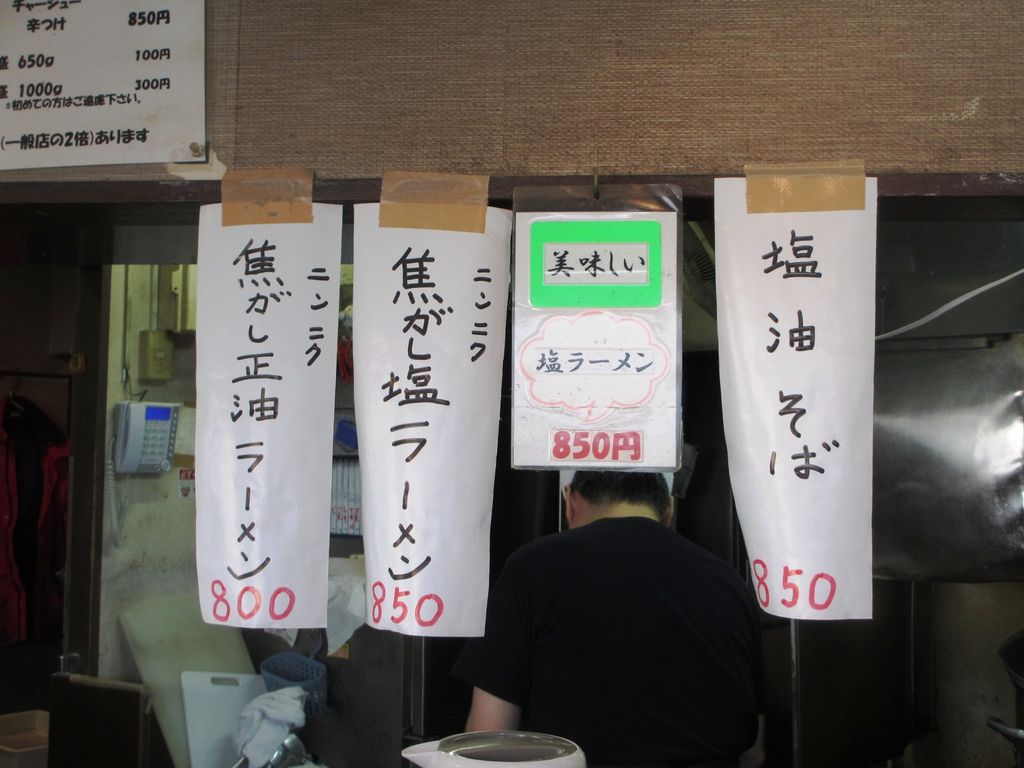 チャーシュー
辛つけ 850円
盛 650g 100円
盛 1000g 300円
*初めての方はご遠慮下さい。
(一般店の2倍)あります
ニンニク
焦がし正油ラーメン
800
ニンニク
焦がし塩ラーメン
850
美味しい
塩ラーメン
850円
塩油そば
850